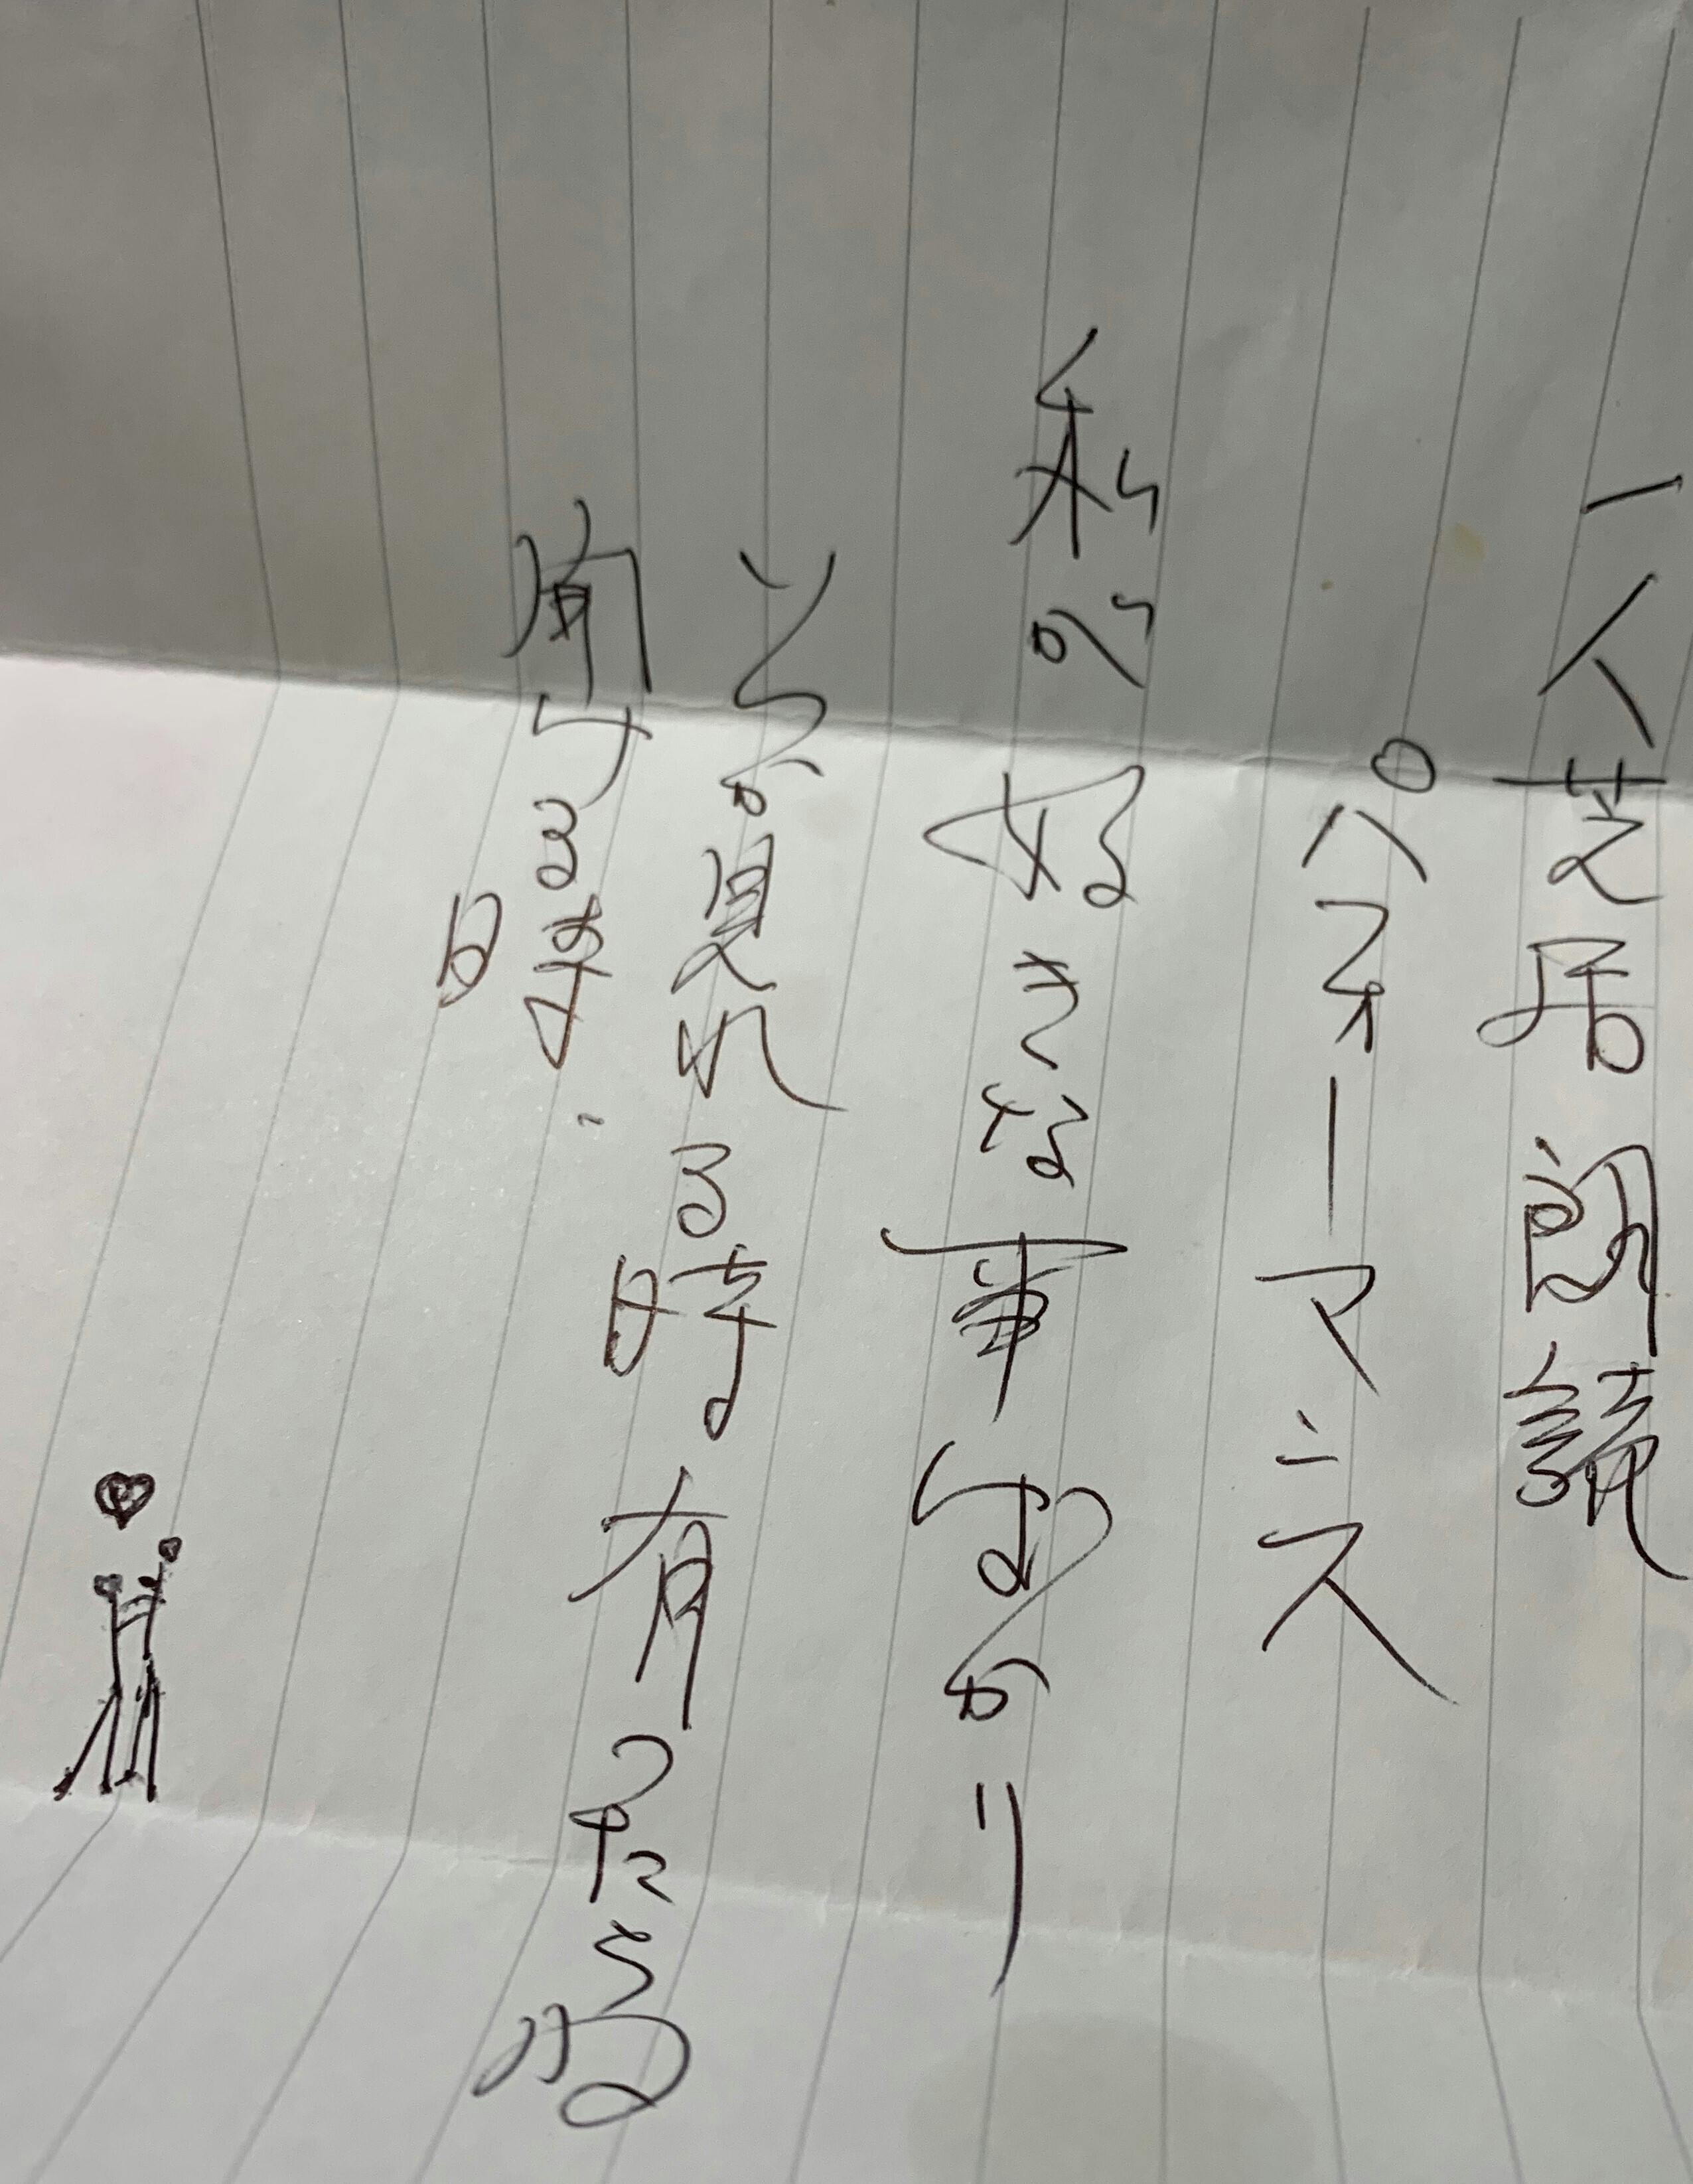 一人芝居 朗読
パフォーマンス
私の好きな事ばかり
見れる時有ったらね
る時、